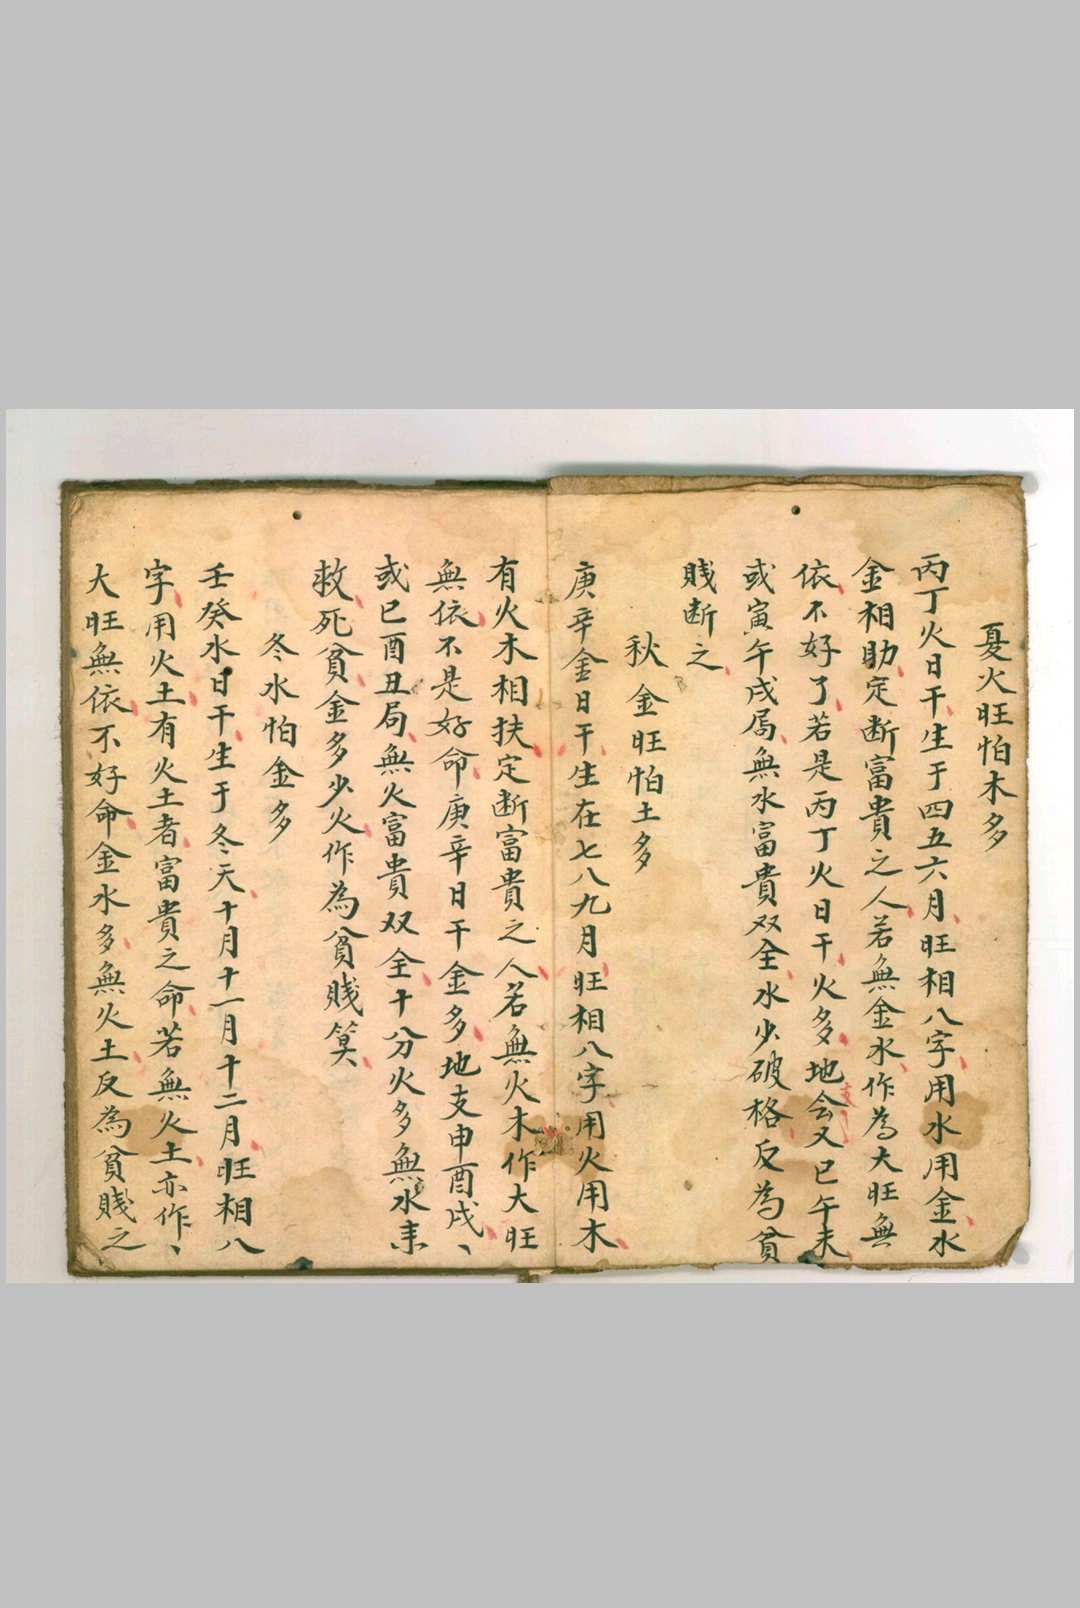 夏火旺怕木多
丙丁火日干生于四五六月旺相八字用水用金水
金相助定断富貴之人若無金水作為大旺無
依不好了若是丙丁火日干火多地会又巳午未
或寅午戌局無水富貴双全水少破格反為貧
賎断之
秋金旺怕土多
庚辛金日干生在七八九月旺相八字用火用木
有火木相扶定断富貴之人若無火木作大旺
無依不是好命庚辛日干金多地支申酉戌、
或巳酉丑局無火富貴双全十分火多無水来
救死貧金多少火作為貧賎算
冬水怕金多
壬癸水日干生于冬天十月十一月十二月旺相八
字用火土有火土者富貴之命若無火土亦作、
大旺無依不好命金水多無火土反為貧賎之